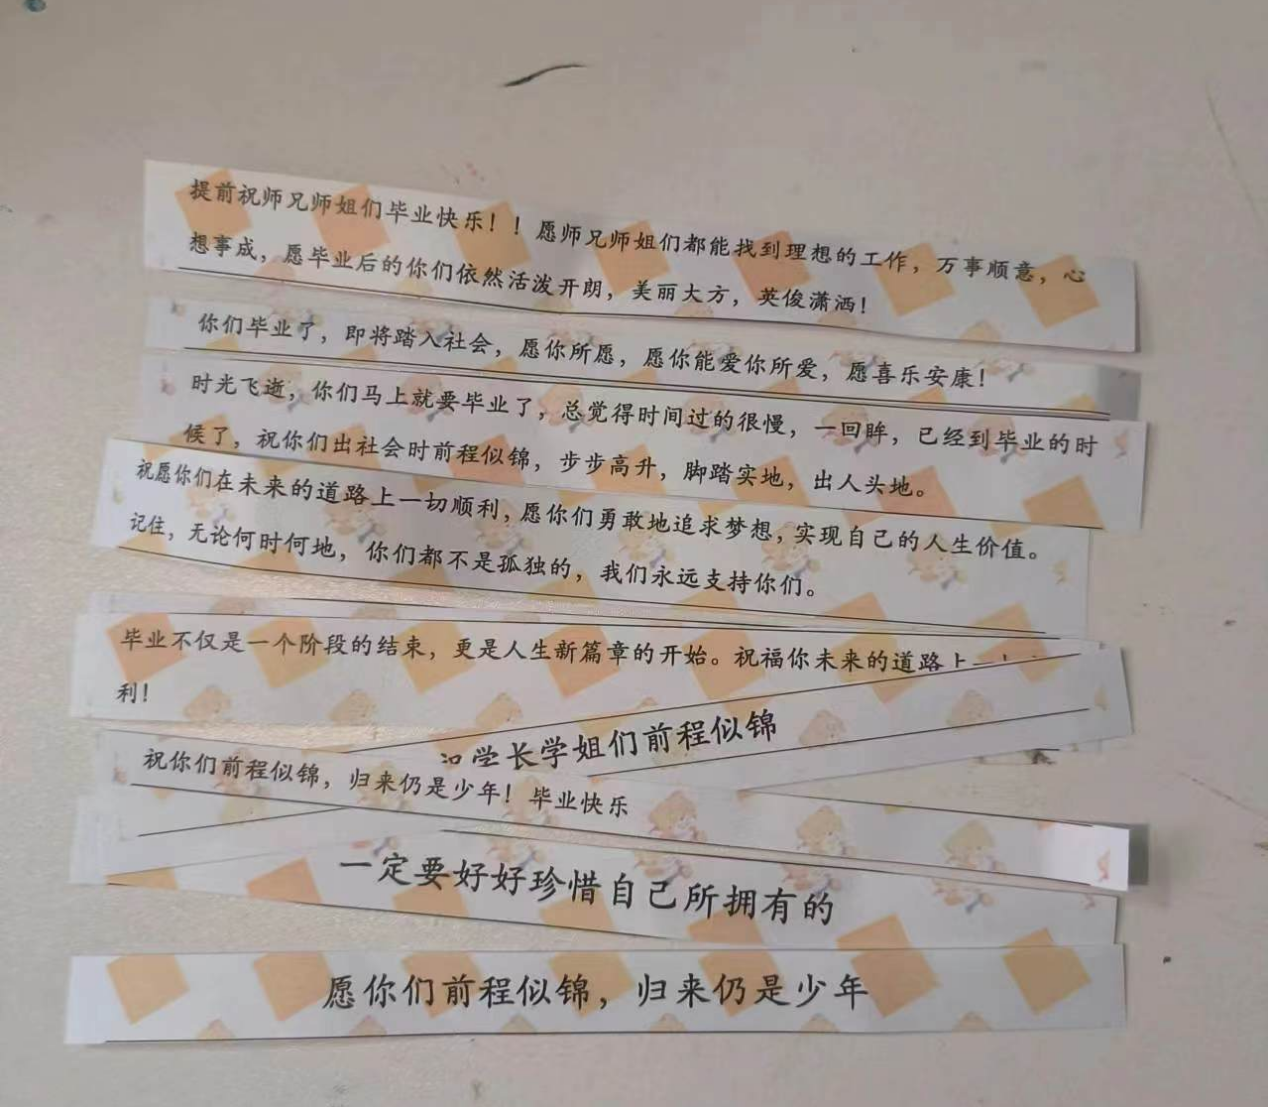 提前祝师兄师姐们毕业快乐！！愿师兄师姐们都能找到理想的工作，万事顺意，心
想事成，愿毕业后的你们依然活泼开朗，美丽大方，英俊潇洒！
你们毕业了，即将踏入社会，愿你所愿，愿你能爱你所爱，愿喜乐安康！
时光飞逝，你们马上就要毕业了，总觉得时间过的很慢，一回眸，已经到毕业的时
候了，祝你们出社会时前程似锦，步步高升，脚踏实地，出人头地。
祝愿你们在未来的道路上一切顺利，愿你们勇敢地追求梦想，实现自己的人生价值。
记住，无论何时何地，你们都不是孤独的，我们永远支持你们。
毕业不仅是一个阶段的结束，更是人生新篇章的开始。祝福你未来的道路上一
利！
学长学姐们前程似锦
祝你们前程似锦，归来仍是少年！毕业快乐
一定要好好珍惜自己所拥有的
愿你们前程似锦，归来仍是少年